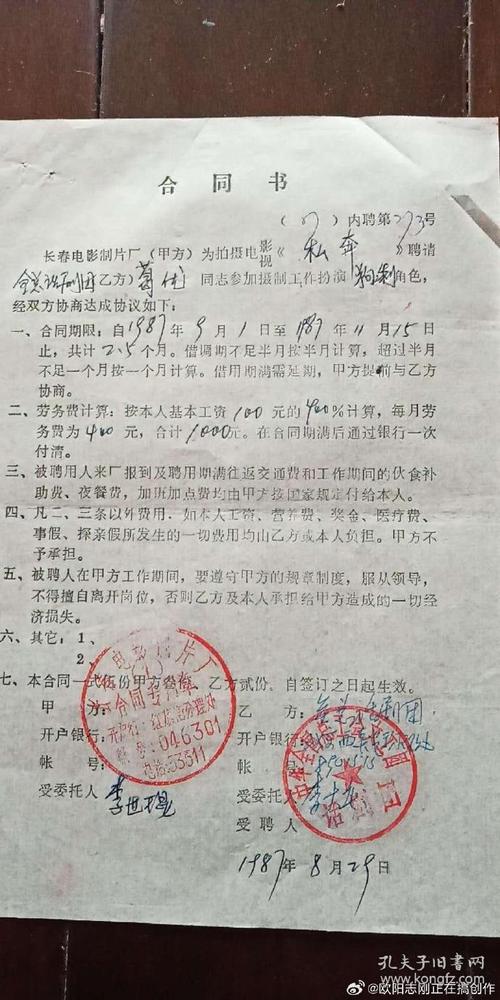 合同书
(87)内聘第273号
长春电影制片厂(甲方)为拍摄电影视《私奔》聘请
全总话剧团乙方)葛优同志参加摄制工作扮演 角色,
经双方协商达成协议如下:
一、合同期限:自1987年9月1日至1987年11月15日
止,共计2.5个月。借调期不足半月按半月计算,超过半月
不足一个月按一个月计算。借用期满需延期,甲方提前与乙方
协商。
二、劳务费计算:按本人基本工资100元的400%计算,每月劳
务费为400元,合计1000元。在合同期满后通过银行一次
付清。
三、被聘用人来厂报到及聘用期满往返交通费和工作期间的伙食补
助费、夜餐费,加班加点费均由甲方按国家规定付给本人。
四、凡二、三条以外费用.如本人工资、营养费、奖金、医疗费、
事假、探亲假所发生的一切费用均由乙方或本人负担。甲方不
予承担。
五、被聘人在甲方工作期间,要遵守甲方的规章制度,服从领导,
不得擅自离开岗位,否则乙方及本人承担给甲方造成的一切经
济损失。
六、其它:1、
2、
七、本合同一式 份甲方叁份 乙方贰份.自签订之日起生效。
甲方:
开户银行:
帐号:
受委托人
乙方:全总话剧团
开户银行:
帐号:
受委托人
受聘人
1987年8月29日
电影制片厂
合同专用章
046301
电话:53311
话剧团
孔夫子旧书网
www.kongfz.com
@欧阳志刚正在搞创作